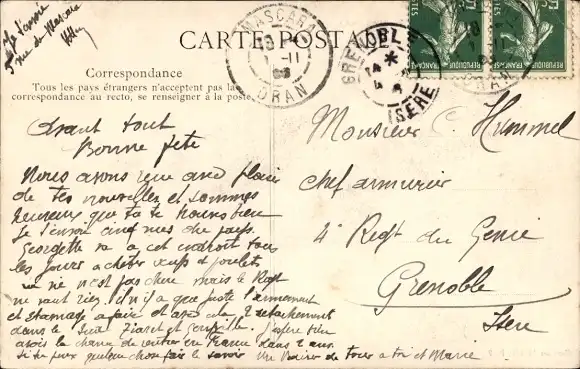 Je t'envoie
5 vues de Mascara
CARTE POSTALE
MASCARA
ORAN
GRENOBLE
ISERE
REPUBLIQUE FRANÇAISE
Correspondance
Tous les pays étrangers n'acceptent pas la
correspondance au recto, se renseigner à la poste
Avant tout
Bonne fête
Nous avons reçu avec plaisir
de tes nouvelles et sommes
heureux que tu te trouves bien
Je t'envoie cinq vues du pays.
Georgette va a cet endroit tous
les jours acheter œufs et poulets
ce n'est pas cher mais le Regt
ne vaut rien il n'y a que juste l'armement
et a faire et avec cela 2 detachement
dans le Sud et J'espère bien
avoir la chance de rentrer en France dans 2 ans.
si tu peux quelque chose fais le savoir Un baiser de tous a toi et Marie
Monsieur C. Hummel
chef armurier
4e Regt du Genie
Grenoble
Isere